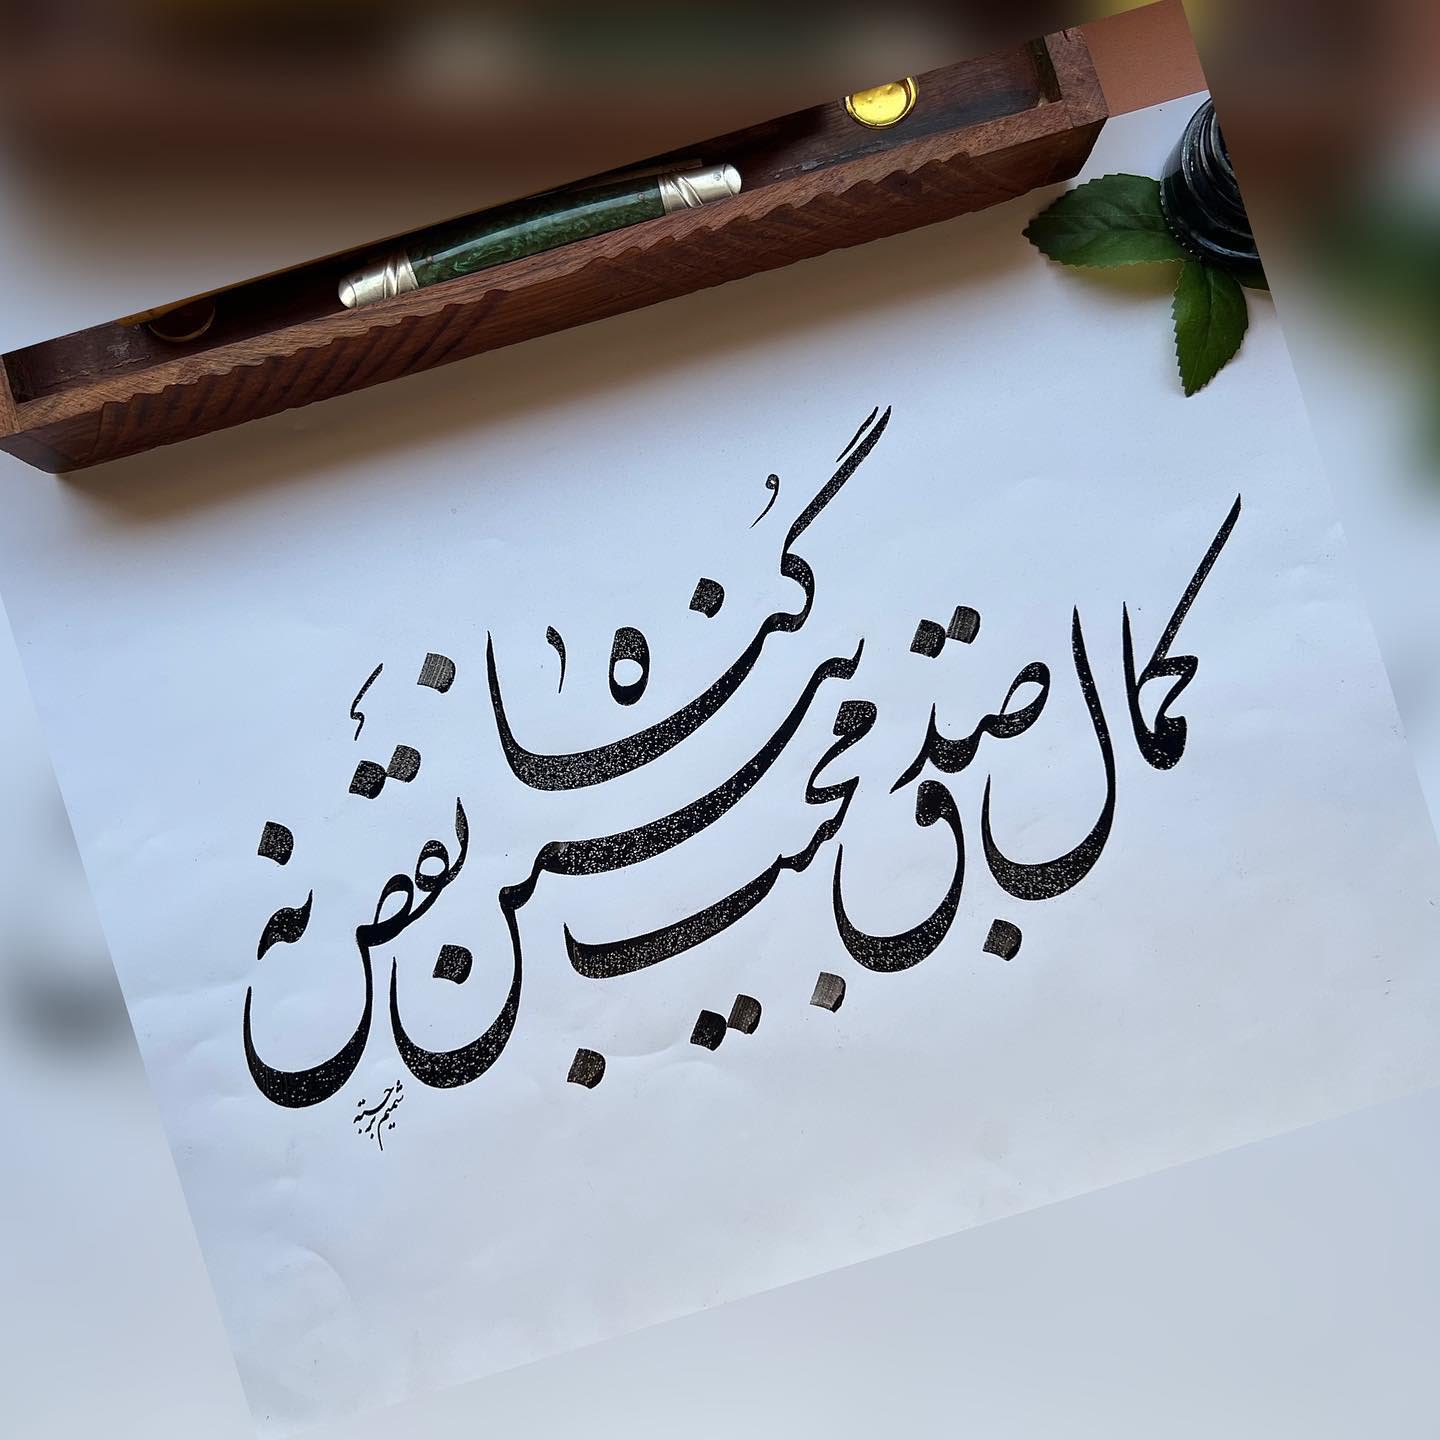 کمال صدق محبت ببین نه نقص گناه
شمیم برجسته